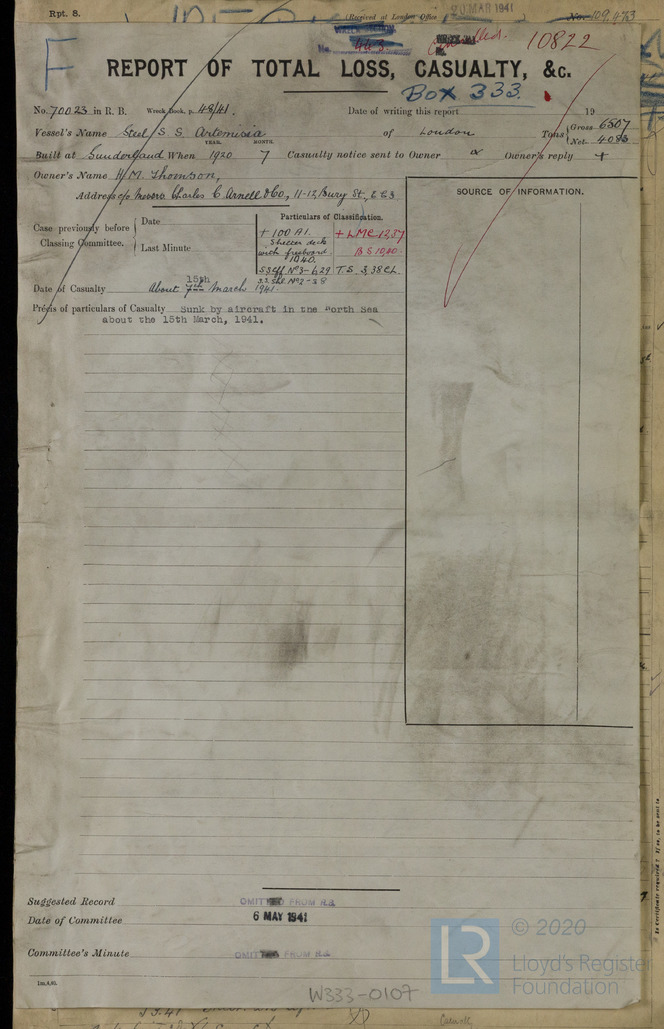 Rpt. 8.
(Received at London Office
20 MAR 1941
No. 109,473
No. 443
10822
F
REPORT OF TOTAL LOSS, CASUALTY, &c.
Box 333.
No. 70023 in R. B. Wreck Book, p. 48/41.
Date of writing this report 19
Vessel's Name Steel S. S. Artemisia of London Tons { Gross 6507
Net 4083
YEAR. MONTH.
Built at Sunderland When 1920 7 Casualty notice sent to Owner Owner's reply
Owner's Name H/M. Thomson,
Address c/o Messrs Charles C. Arnell & Co., 11-12, Bury St., E.C.3
SOURCE OF INFORMATION.
Case previously before Classing Committee. { Date
Last Minute
Particulars of Classification.
+ 100 A1. + LMC 12,37
Shelter deck
with freeboard BS 10,40
10.40.
S.S. Nº3-6.29 T.S. 3,38 CL.
S.S. Nº2-38
15th
Date of Casualty About 7th March 1941.
Précis of particulars of Casualty Sunk by aircraft in the North Sea
about the 15th March, 1941.
Suggested Record OMITTED FROM R.B.
Date of Committee 6 MAY 1941
Committee's Minute OMITTED FROM R.B.
W333-0107
© 2020
LR
Lloyd's Register
Foundation